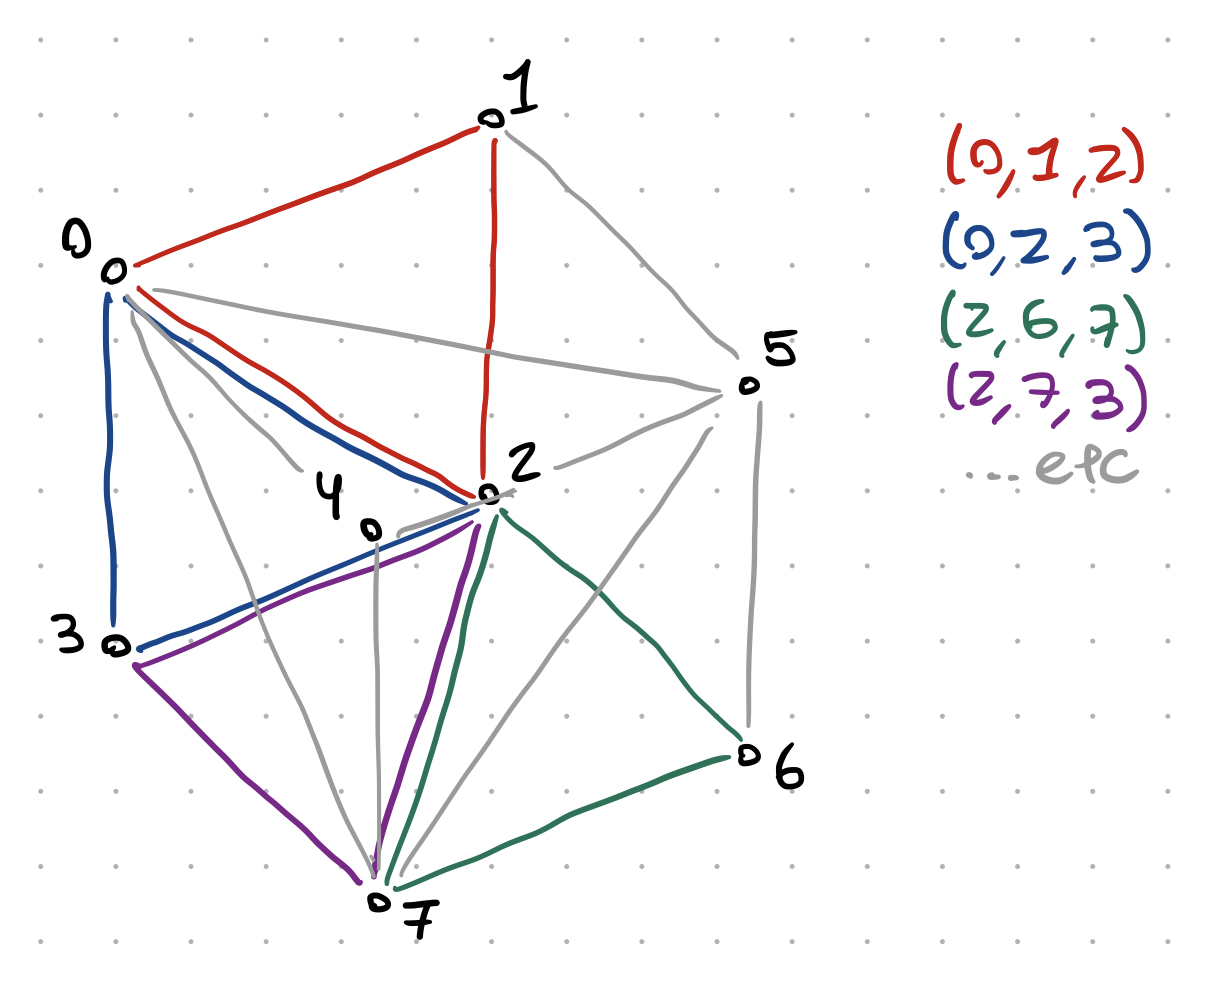 1
0
5
2
4
3
6
7
(0,1,2)
(0,2,3)
(2,6,7)
(2,7,3)
... etc